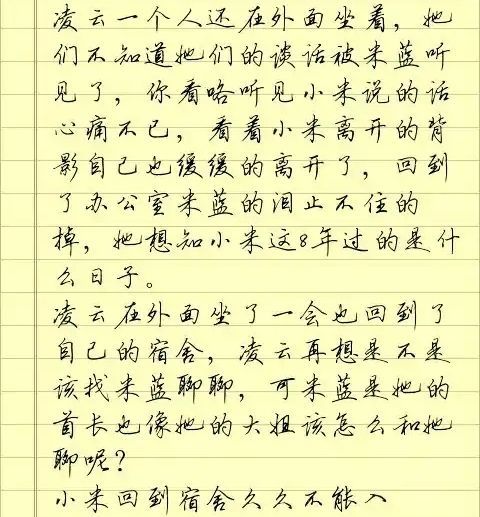 凌云一个人还在外面坐着，她
们不知道她们的谈话被米蓝听
见了，你看咯听见小米说的话
心痛不已，看着小米离开的背
影自己也缓缓的离开了，回到
了办公室米蓝的泪止不住的
掉，她想知小米这8年过的是什
么日子。
凌云在外面坐了一会也回到了
自己的宿舍，凌云再想是不是
该找米蓝聊聊，可米蓝是她的
首长也像她的大姐该怎么和她
聊呢？
小米回到宿舍久久不能入